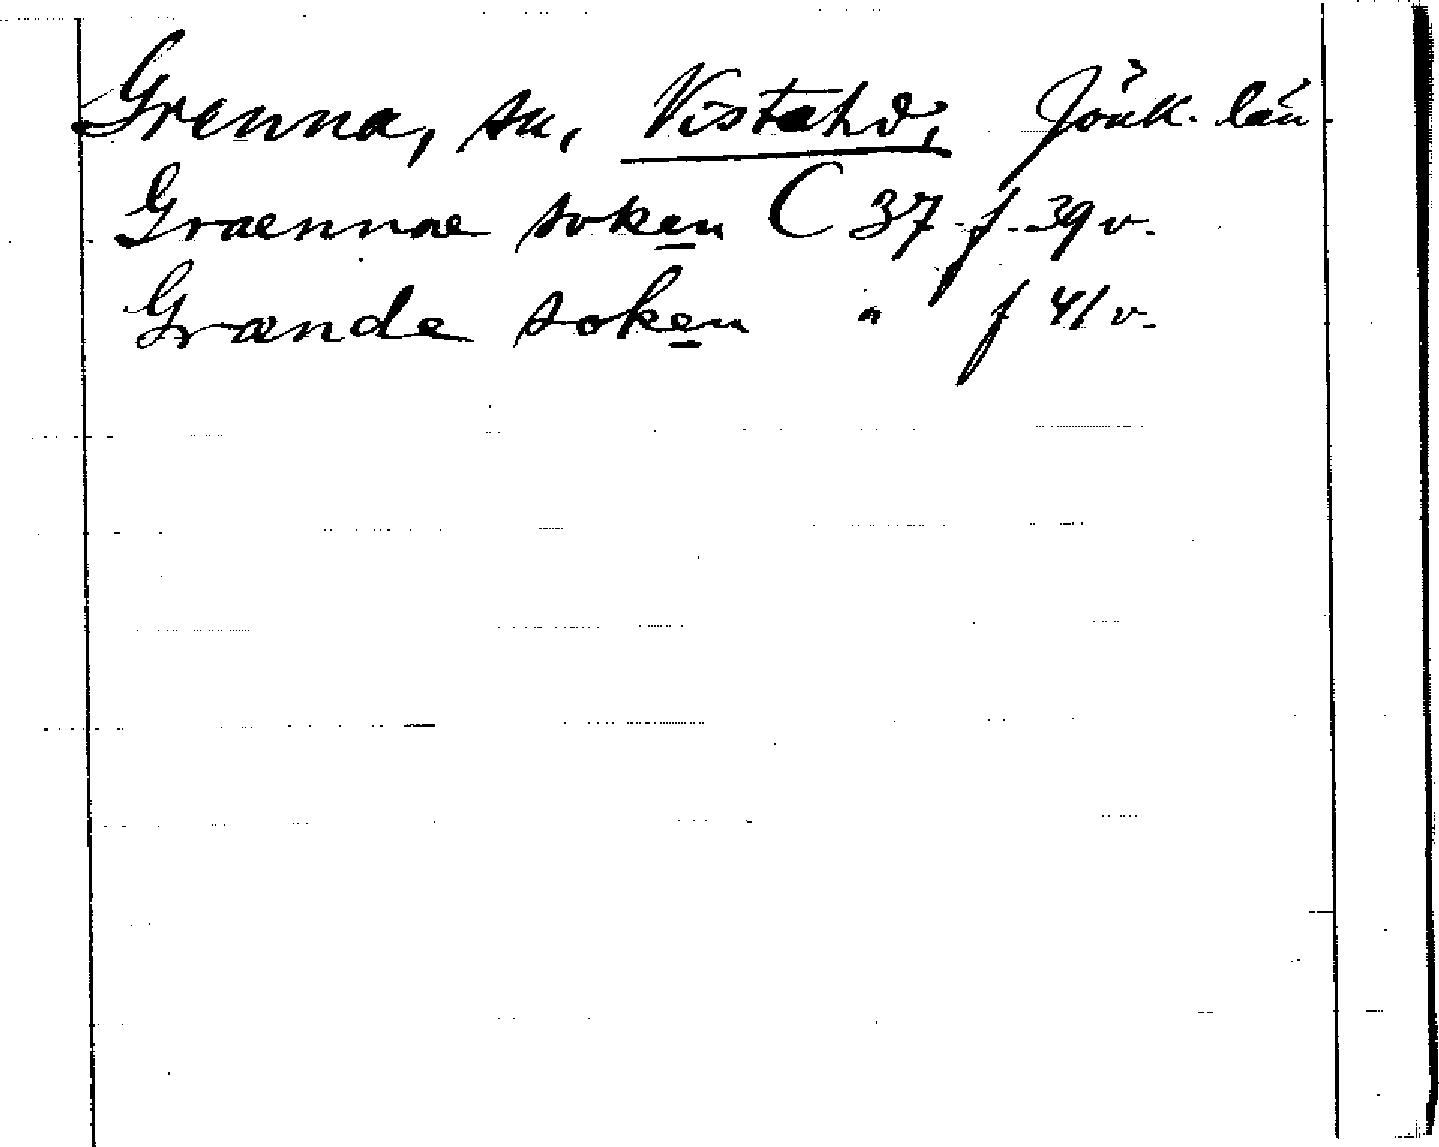 Grenna, sn, Vista hd, Jönk. län.
Graennae soken C 37 f. 39 v.
Grænde soken " f 41 v.